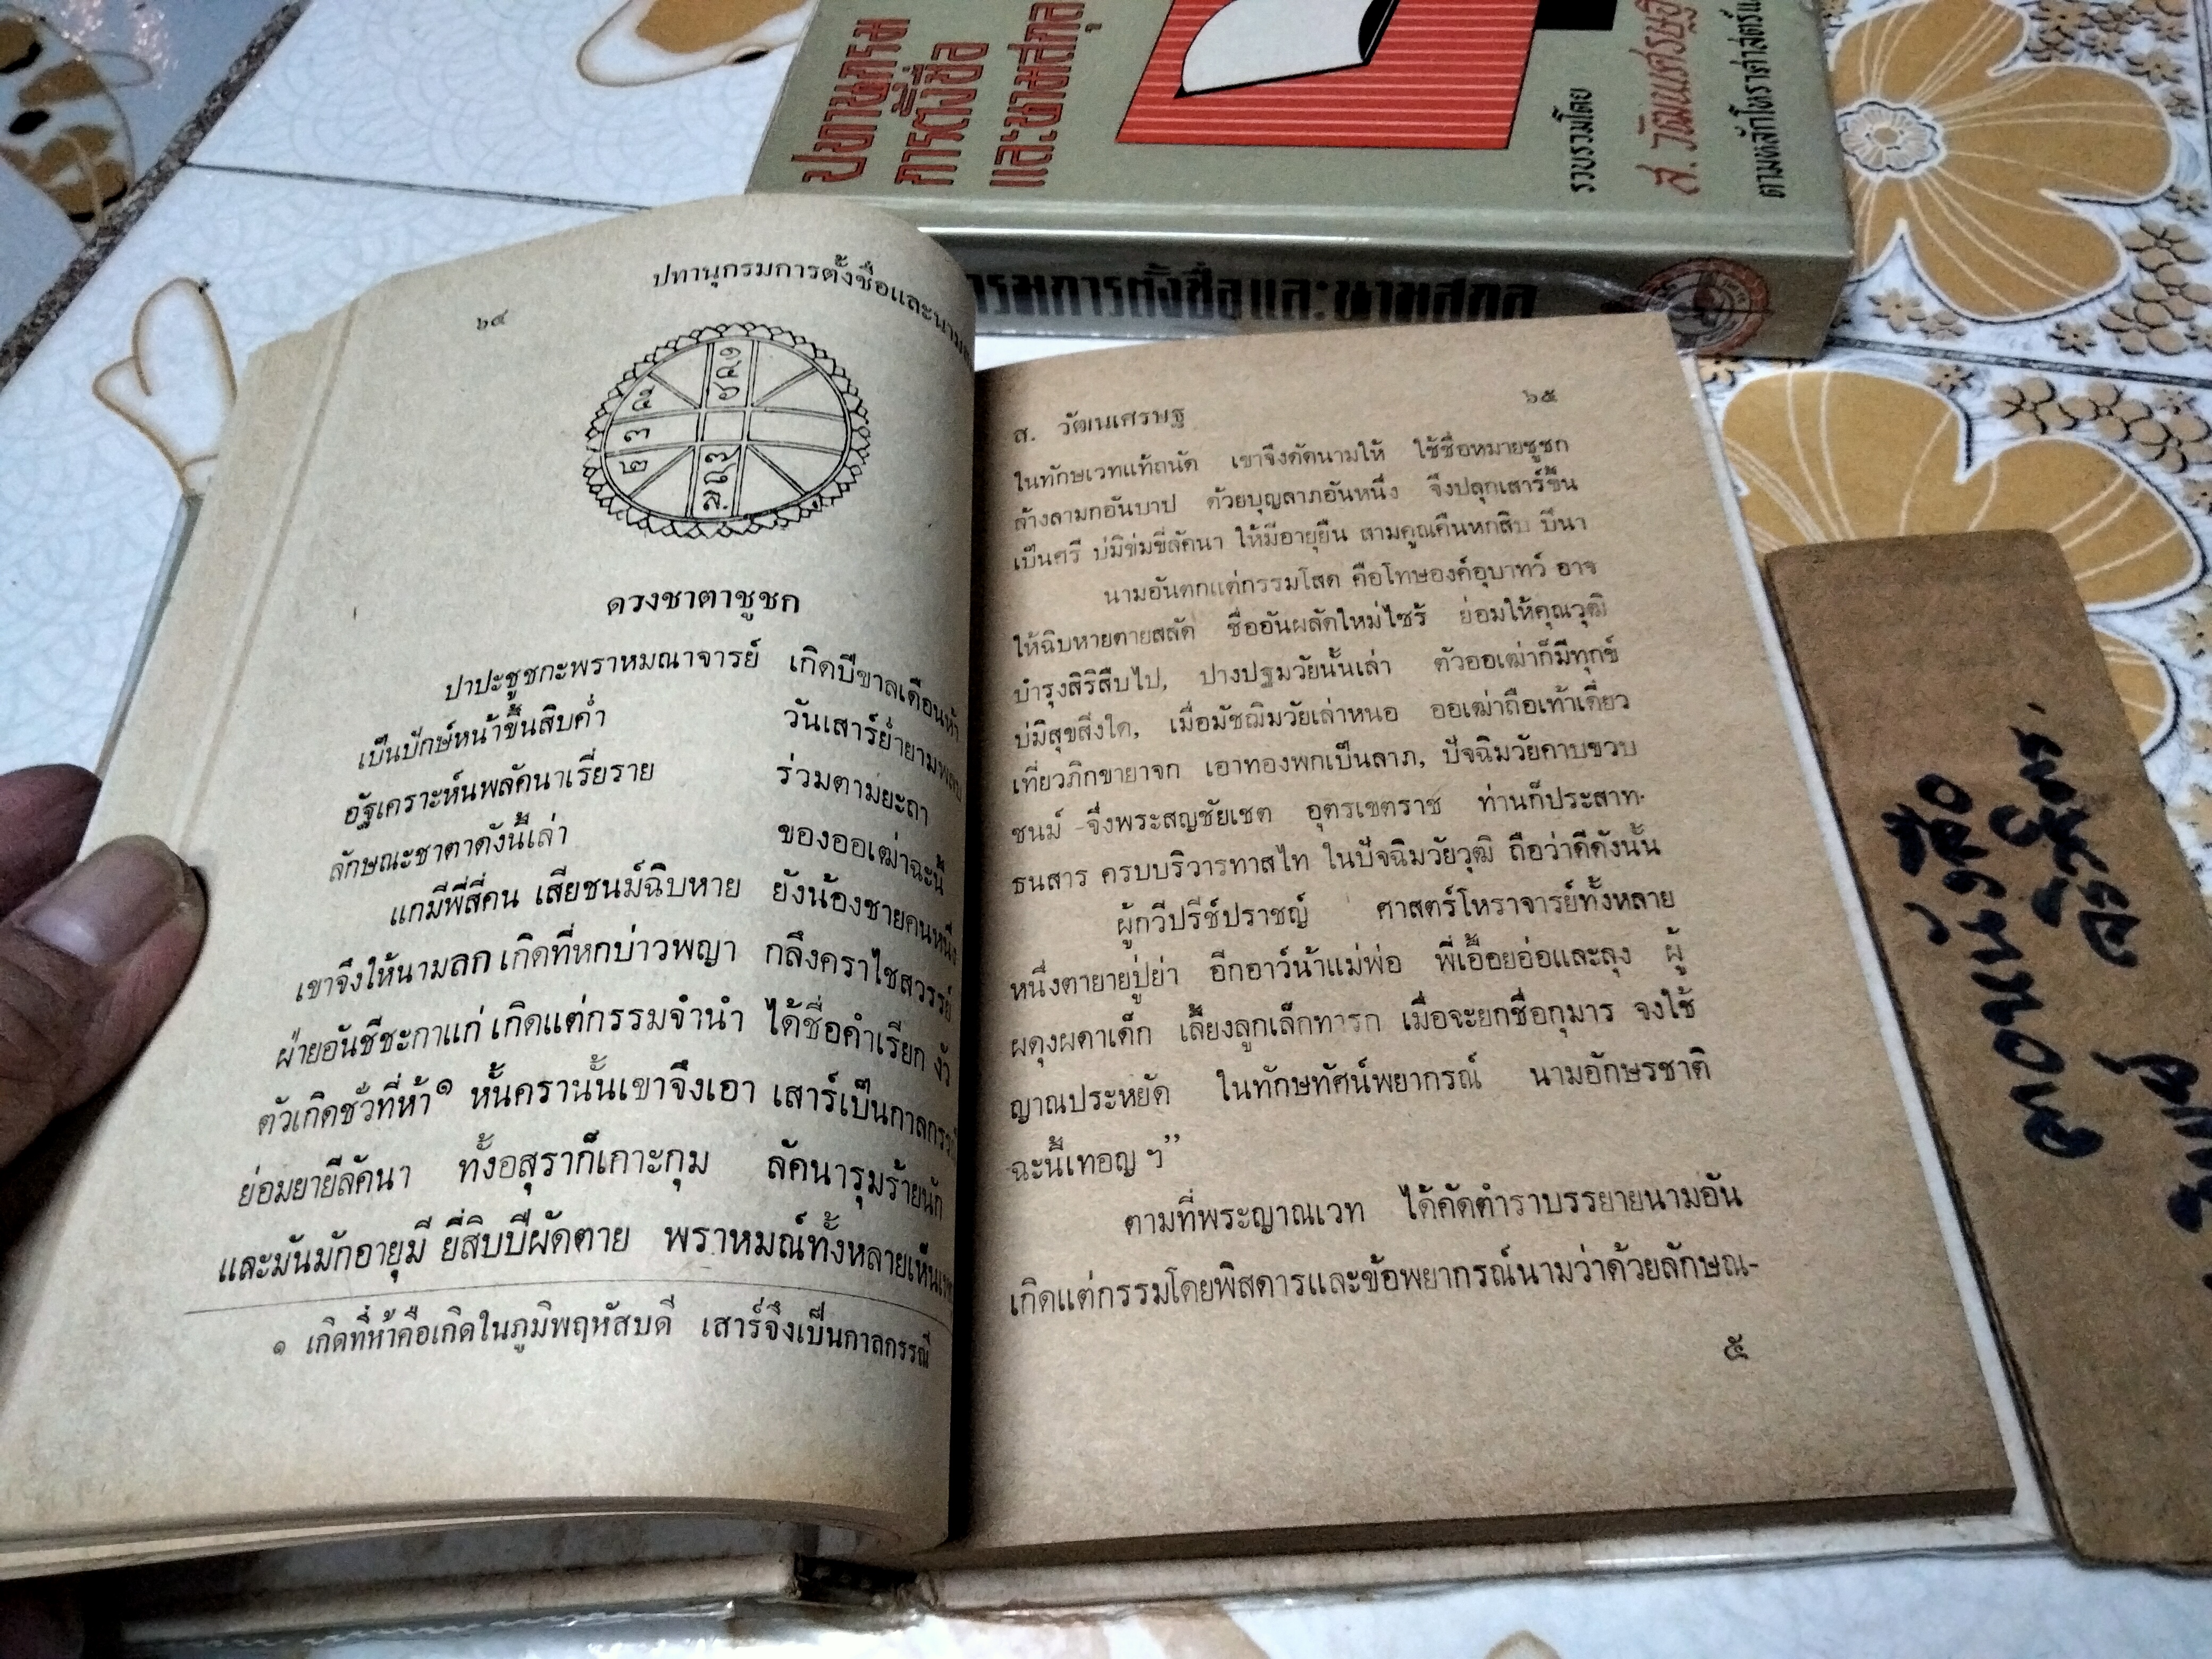 ปทานุกรม
การตั้งชื่อ
และนามสกุล
รวบรวมโดย
ส. วัฒนเศรษฐ
ตามหลักโหราศาสตร์
กรมการตั้งชื่อและนามสกุล
๖๔
ปทานุกรมการตั้งชื่อและนาม
ดวงชาตาชูชก
ปาปะชูชกะพราหมณาจารย์ เกิดปีขาลเดือนห้า
เป็นปักษ์หน้าขึ้นสิบค่ำ วันเสาร์ย่ำยาม
อัฐเคราะห์นพลัคนาเรี่ยราย ร่วมตามยะถา
ลักษณะชาตาดังนี้เล่า ของออเฒ่าฉะนี้
แกมีพี่สี่คน เสียชนม์ฉิบหาย ยังน้องชายคนหนึ่ง
เขาจึงให้นามลก เกิดที่หกบ่าวพญา กลึงคราไชสวรรย์
ฝ่ายอันชีชะกาแก่ เกิดแต่กรรมจำนำ ได้ชื่อคำเรียก งัว
ตัวเกิดชั่วที่ห้า๑ หั้นครานั้นเขาจึงเอา เสาร์เป็นกาลกรรณี
ย่อมยายีลัคนา ทั้งอสุราก็เกาะกุม ลัคนารุมร้ายนัก
และมันมักอายุมี ยี่สิบปีผัดตาย พราหมณ์ทั้งหลายเห็น
๑ เกิดที่ห้าคือเกิดในภูมิพฤหัสบดี เสาร์จึงเป็นกาลกรรณี
ส. วัฒนเศรษฐ ๖๕
ในทักษเวทแท้ถนัด เขาจึงดัดนามให้ ใช้ชื่อหมายชูชก
ล้างลามกอันบาป ด้วยบุญลาภอันหนึ่ง จึงปลุกเสาร์ขึ้น
เป็นศรี บ่มิข่มขี่ลัคนา ให้มีอายุยืน สามคูณคืนหกสิบ ปีนา
นามอันตกแต่กรรมโสด คือโทษองค์อุบาทว์ อาจ
ให้ฉิบหายตายสลัด ชื่ออันผลัดใหม่ไซร้ ย่อมให้คุณวุฒิ
บำรุงสิริสืบไป, ปางปฐมวัยนั้นเล่า ตัวออเฒ่าก็มีทุกข์
บ่มิสุขสิ่งใด, เมื่อมัชฌิมวัยเล่าหนอ ออเฒ่าถือเท้าเดี่ยว
เที่ยวภิกขายาจก เอาทองพกเป็นลาภ, ปัจฉิมวัยคาบขวบ
ชนม์ จึ่งพระสญชัยเชต อุตรเขตราช ท่านก็ประสาท-
ธนสาร ครบบริวารทาสไท ในปัจฉิมวัยวุฒิ ถือว่าดีดังนั้น
ผู้กวีปรีชัปราชญ์ ศาสตร์โหราจารย์ทั้งหลาย
หนึ่งตายายปู่ย่า อีกอาว์น้าแม่พ่อ พี่เอื้อยอ่อและลุง ผู้
ผดุงผดาเด็ก เลี้ยงลูกเล็กทารก เมื่อจะยกชื่อกุมาร จงใช้
ญาณประหยัด ในทักษทัศน์พยากรณ์ นามอักษรชาติ
ฉะนี้เทอญ ฯ”
ตามที่พระญาณเวท ได้คัดตำราบรรยายนามอัน
เกิดแต่กรรมโดยพิสดารและข้อพยากรณ์นามว่าด้วยลักษณ-
๕